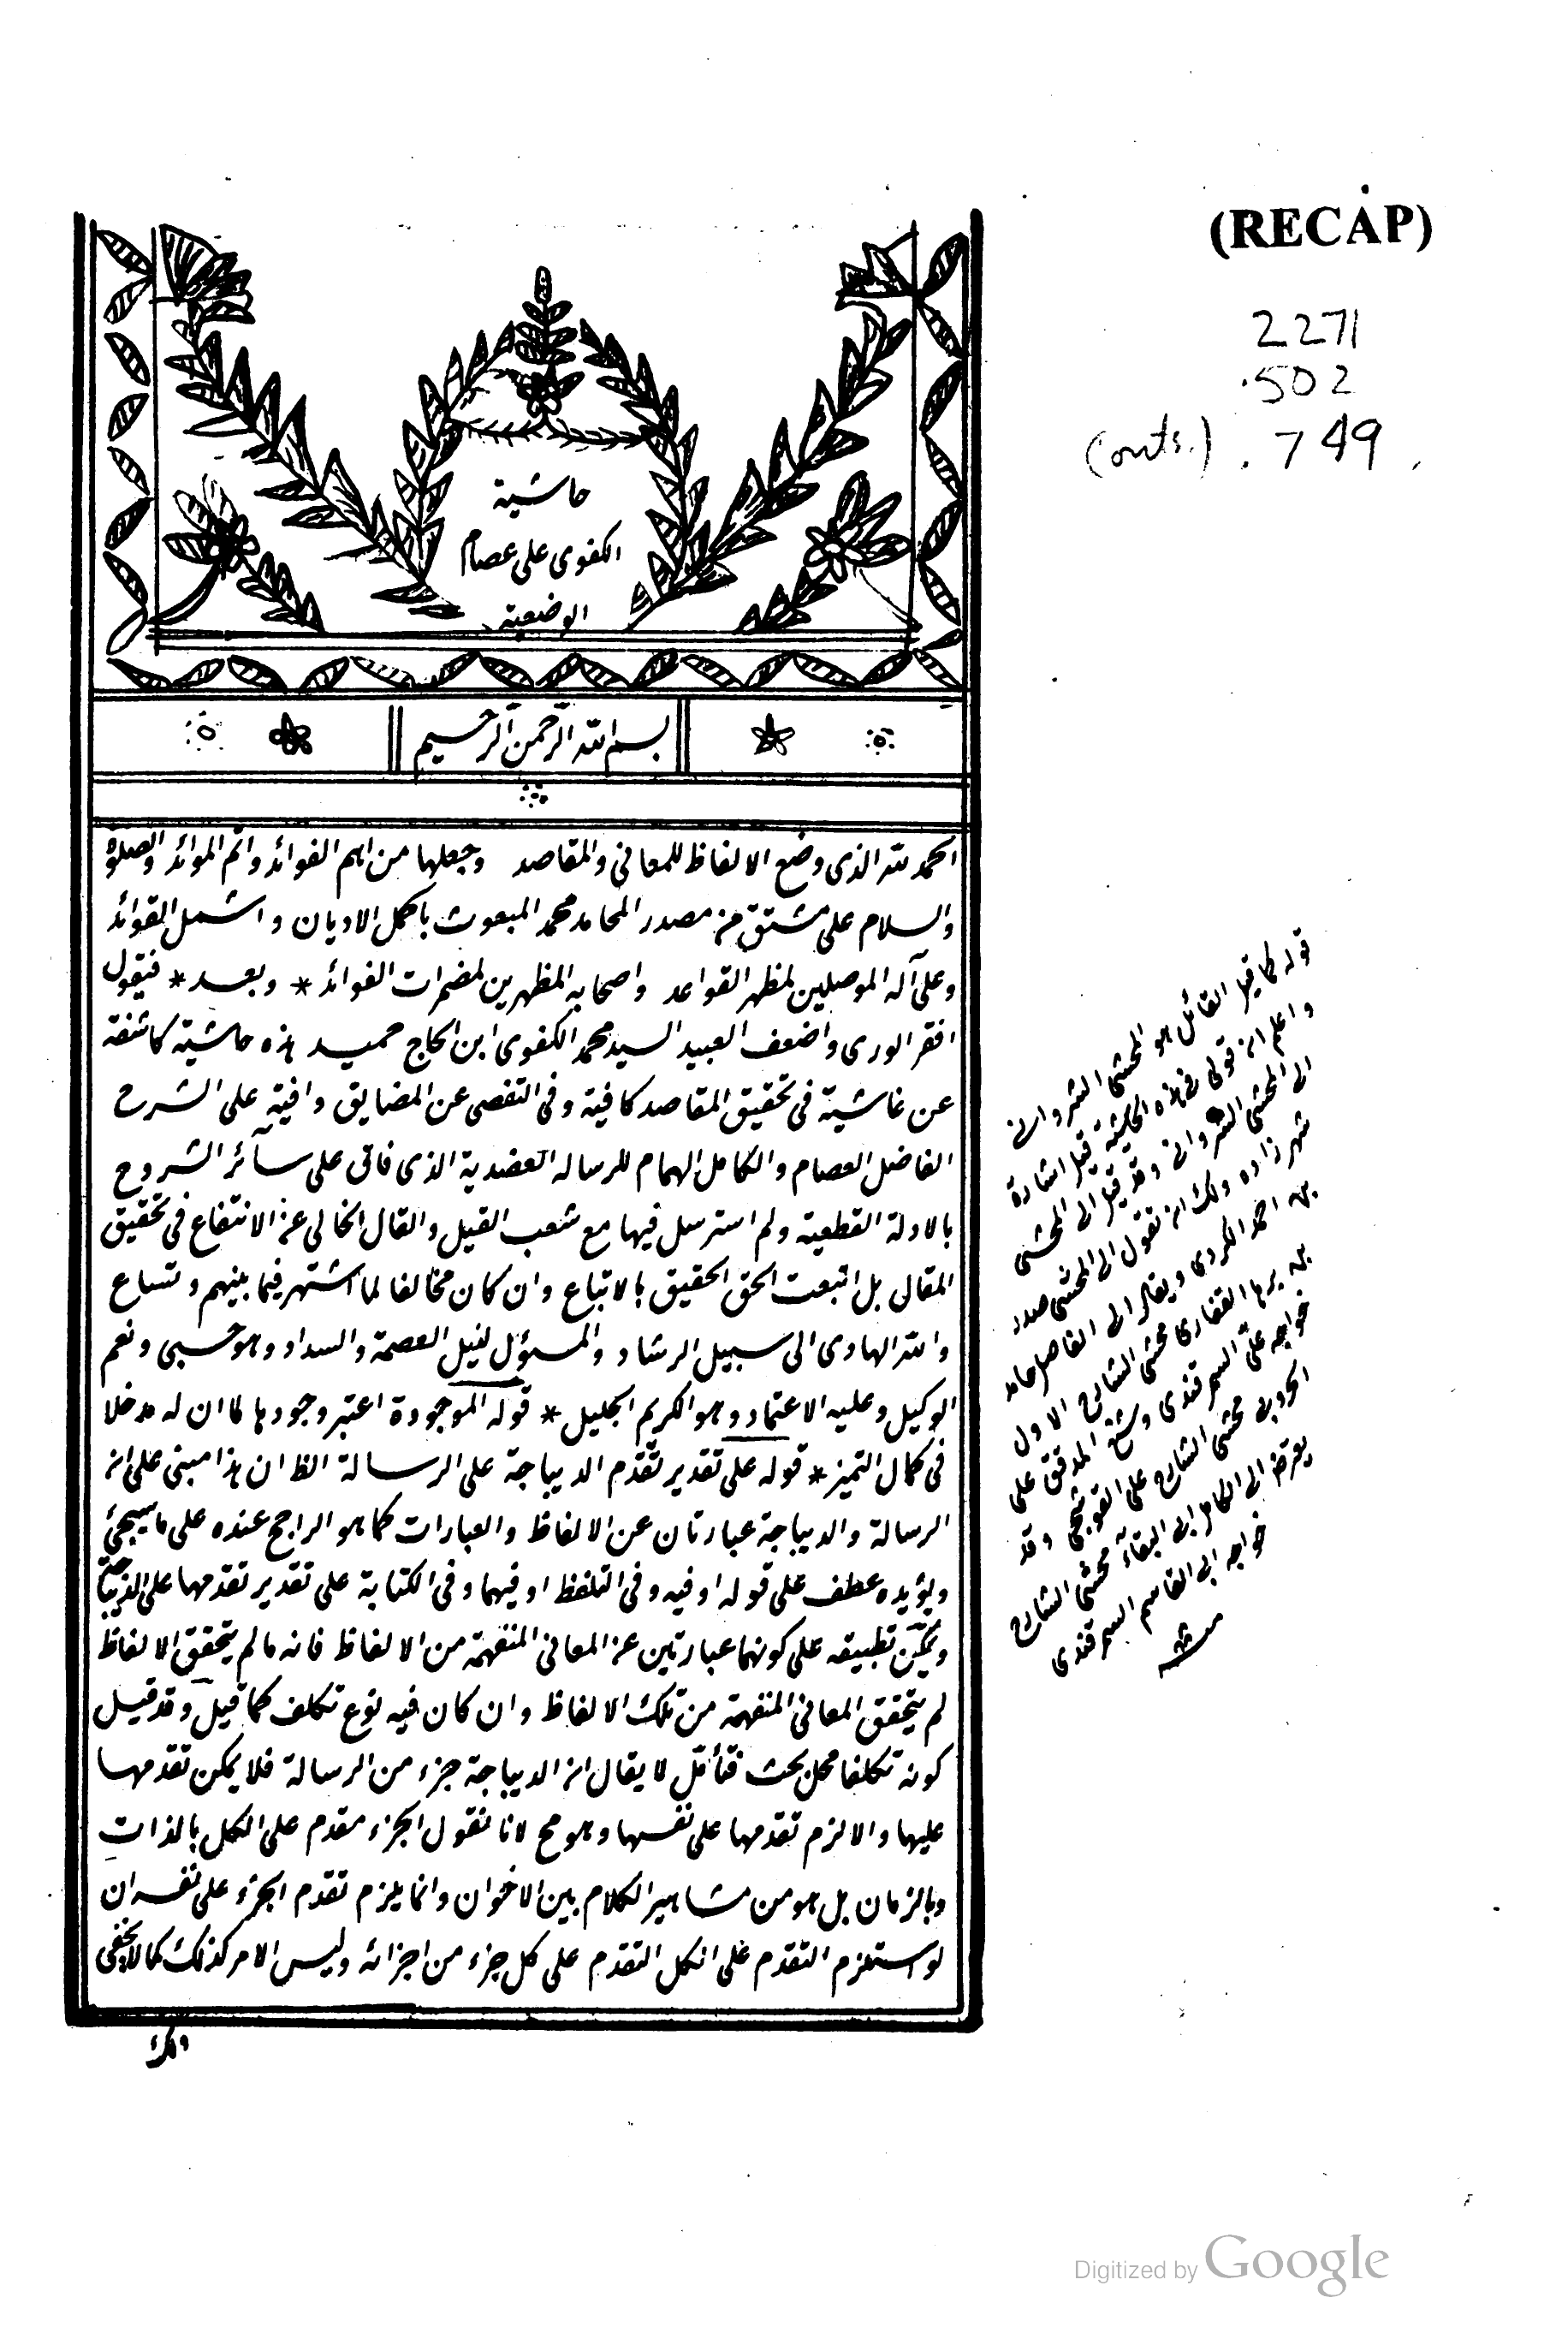 (RECAP)
2271
.502
(outs.) .749.
حاشية
الكفوى على عصام
الوضعية
بسم الله الرحمن الرحيم
الحمد لله الذى وضع الالفاظ للمعانى والمقاصد وجعلها من اهم الفوائد واتم الموائد والصلوة
والسلام على مشتق من مصدر المحامد محمد المبعوث باكمل الاديان واشمل القوائد
وعلى آله الموصلين لمظهر القواعد واصحابه المظهرين لمضمرات الفوائد * وبعد * فيقول
افقر الورى واضعف العبيد السيد محمد الكفوى ابن الحاج حميد هذه حاشية كاشفة
عن غاشية فى تحقيق المقاصد كافية وفى التفصى عن المضايق وافية على الشرح
الفاضل العصام والكامل الهمام للرسالة العضدية الذى فاق على سآئر الشروح
بالادلة القطعية ولم استرسل فيها مع شعب القيل والقال الخالى عن الانتفاع فى تحقيق
المقال بل اتبعت الحق الحقيق بالاتباع وان كان مخالفا لما اشتهر فيما بينهم وتساع
والله الهادى الى سبيل الرشاد والمسؤل لنيل العصمة والسداد وهو حسبى ونعم
الوكيل وعليه الاعتماد وهو الكريم الجليل * قوله الموجودة اعتبر وجودها لما ان له مدخلا
فى كمال التميز * قوله على تقدير تقدم الديباجة على الرسالة الظ ان هذا مبنى على ان
الرسالة والديباجة عبارتان عن الالفاظ والعبارات كما هو الراجح عنده على ما سيجئ
ويؤيده عطف على قوله او فيه وفى التلفظ او فيهما وفى الكتابة على تقدير تقدمها على الديباجة
ويمكن تطبيقه على كونهما عبارتين عن المعانى المنفهمة من الالفاظ فانه ما لم يتحقق الالفاظ
لم يتحقق المعانى المنفهمة من تلك الالفاظ وان كان فيه نوع تكلف كما قيل وقد قيل
كونه تكلفا محل بحث فتأمل لا يقال ان الديباجة جزء من الرسالة فلا يمكن تقدمها
عليها والا لزم تقدمها على نفسها وهو مح لانا نقول الجزء مقدم على الكل بالذات
وبالزمان بل هو من مشاهير الكلام بين الاخوان وانما يلزم تقدم الجزء على نفسه ان
لو استلزم التقدم على الكل التقدم على كل جزء من اجزائه وليس الامر كذلك كما لا يخفى
قوله كما قيل القائل هو المحشى الشروانى
واعلم ان قولى فى هذه الحاشية قيل اشارة
الى المحشى الشروانى وقد قيل الى المحشى
شهر زاده ولك ان تقول الى المحشى صدر
بن احمد الكردى ويقال الى الفاضل حامد
بن برهان الغفارى محشى الشارح الاول
خواجه على السمرقندى وشنع المدقق على
الحروبى محشى الشارح على القوشجى وقد
يعرض الى الكامل ابى البقاء محشى الشارح
خواجه ابى القاسم السمرقندى
منه
Digitized by Google